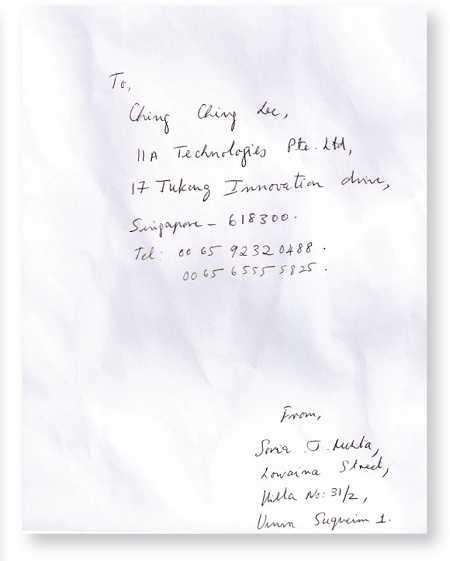 To,
Ching Ching Lee,
11A Technologies Pte. Ltd,
17 Tukang Innovation drive,
Singapore - 618300.
Tel: 00 65 9232 0488.
00 65 6555 5825.
From,
Sonia J. Mehta,
Lowaina Street,
Villa No: 31/2,
Umm Suqueim 1.